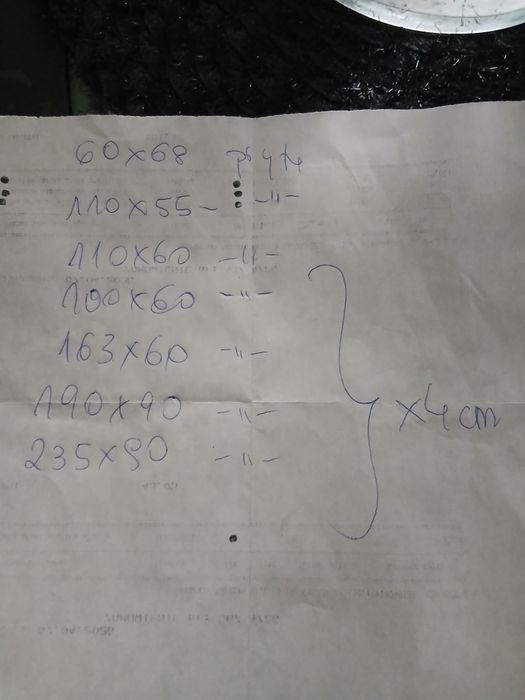 60x68 płyta
110x55 - -11-
110x60 -11-
100x60 -11-
163x60 -11-
190x90 -11-
235x90 -11-
x4cm